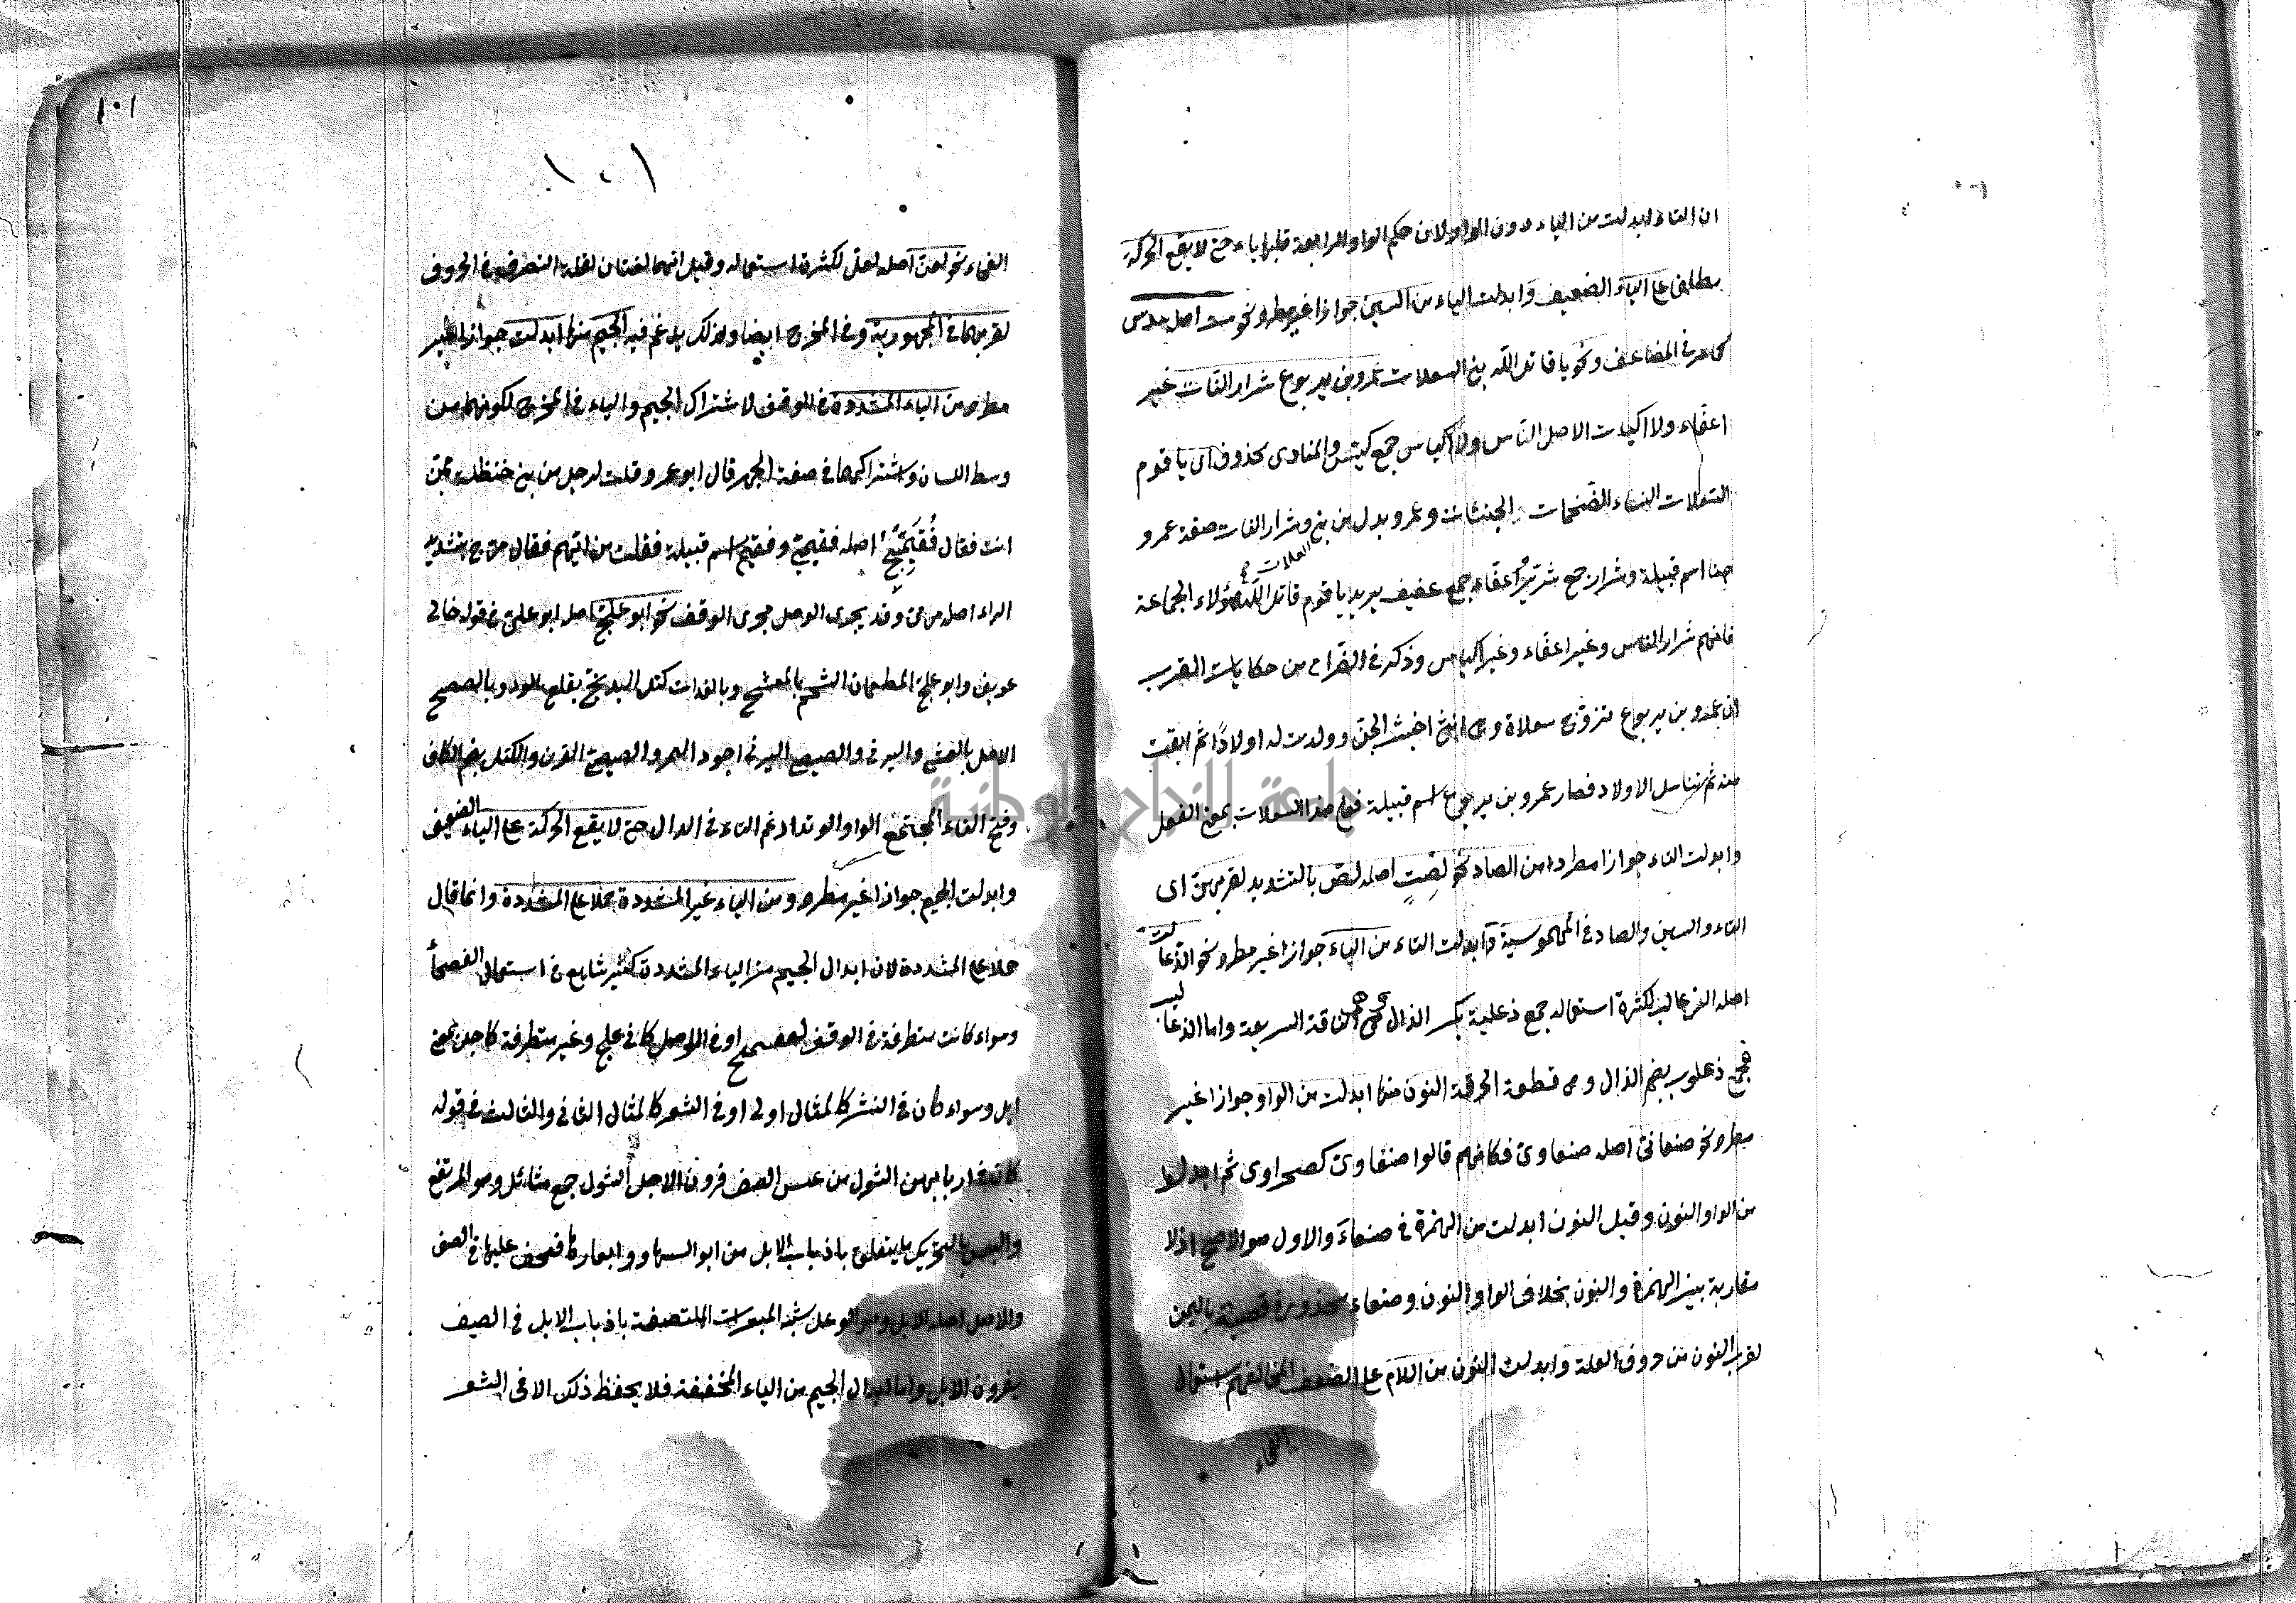 ان التاء ابدلت من الياء دون الواو لان حكم الواو الرابعة قلبها ياء حتى لا يقع الحركة
مطلقى على الياء الضعيف وابدلت الياء من السين جوازا غير مطرد نحو ست اصله سدس
كما مر فى المضاعف ونحو يا قاتل الله بنى السعلات عمرو بن يربوع شرار النات غير
اعفاء ولا اكيات الاصل الناس ولا اكياس جمع كيس والمنادى محذوف اى يا قوم
السعلات النساء الضخمات الجنثات وعمرو بدل من بنى وشرار النات صفة عمرو
هنا اسم قبيلة وشرار جمع شرير اعفاء جمع عفيف يريد يا قوم قاتل الله هؤلاء الجماعة
السعلات
فانهم شرار الناس وغير اعفاء وغير اكياس وذكر فى من حكايات العرب
ان عمرو بن يربوع تزوج سعلاة وهى انثى اخبث الجن وولدت له اولادًا ثم ابقت
منه ثم تناسل الاولاد فصار عمرو بن يربوع اسم قبيلة فعلى هذا السعلات بمعنى الفعل
وابدلت التاء جوازا مطردا من الصاد نحو لصت اصله لص بالتشديد لقربهن اى
التاء والسين والصاد فى المهموسية وابدلت التاء من الباء جوازا غير مطرد نحو الذعالت
اصله الذعالب لكثرة استعماله جمع ذعلبة بكسر الذال هى الناقة السريعة واما الذعاليب
فجمع ذعلوب بضم الذال وهى قطعة الخرقة النون منها ابدلت من الواو جوازا غير
مطرد نحو صنعانى اصله صنعاوى فكانهم قالوا صنعاوى كصحراوى ثم ابدلوا
من الواو النون وقيل النون ابدلت من الهمزة فى صنعاء والاول هو الاصح اذ لا
مقاربة بين الهمزة والنون بخلاف الواو والنون وصنعاء ممدودة قصبة باليمن
لقرب النون من حروف العلة وابدلت النون من اللام على الضعف استعمال
الفصحاء
١٠١
١٠١
الفصحاء نحو لعن اصله لعل لكثرة استعماله وقيل انهما لغتان لقلة التصرف فى الحروف
لقربهما فى المجهورية وفى المخرج ايضا ولذلك يدغم فيه الجيم منها ابدلت جوازا غير
مطرد من الياء المشددة فى الوقف لاشتراك الجيم والياء فى المخرج لكونهما من
وسط اللسان واشتراكهما فى صفة الجهر قال ابو عمرو قلت لرجل من بنى حنظلة ممن
انت فقال فُقَيمِجّ اصله فقيمى وفقيم اسم قبيلة فقلت من ايهم فقال مرّج بتشديد
الراء اصله مرى وقد يجرى الوصل مجرى الوقف نحو ابو علج اصله ابو على فى قوله خالى
عويف وابو علج المطعمان الشحم بالعشج وبالغدات كتل البرنج يقلع بالود وبالصيصج
الاصل بالعشى والبرنى والصيصى البرنى اجود التمر والصيصة القرن والكتل بضم الكاف
وفتح التاء المجتمع الواو الوتد ادغم التاء فى الدال حتى لا يقع الحركة على الياء الضعيف
وابدلت الجيم جوازا غير مطرد ومن الياء غير المشددة حملا على المشددة وانما قال
حملا على المشددة لان ابدال الجيم من الياء المشددة كثير شايع فى استعمال الفصحاء
وسواء كانت متطرفة فى الوقف او فى الوصل كما فى علج وغير متطرفة كاجل بمعنى
ايل وسواء كان فى النثر كالمثال اولى او فى الشعر كالمثال الثانى والثالث فى قوله
كان فى اذنابهن الشول من عبس الصيف قرون الاجل الشول جمع شائل وهو المرتفع
والعبس بالتحريك ما يتعلق باذناب الابل من ابوالها وابعارها فيجف عليها فى الصيف
والاجل اصله الايل وهو الوعل شبه المبعرات الملتصقة باذناب الابل فى الصيف
بقرون الايل واما ابدال الجيم من الياء المخففة فلا يحفظ ذلك الا فى الشعر
جامعة النجاح الوطنية